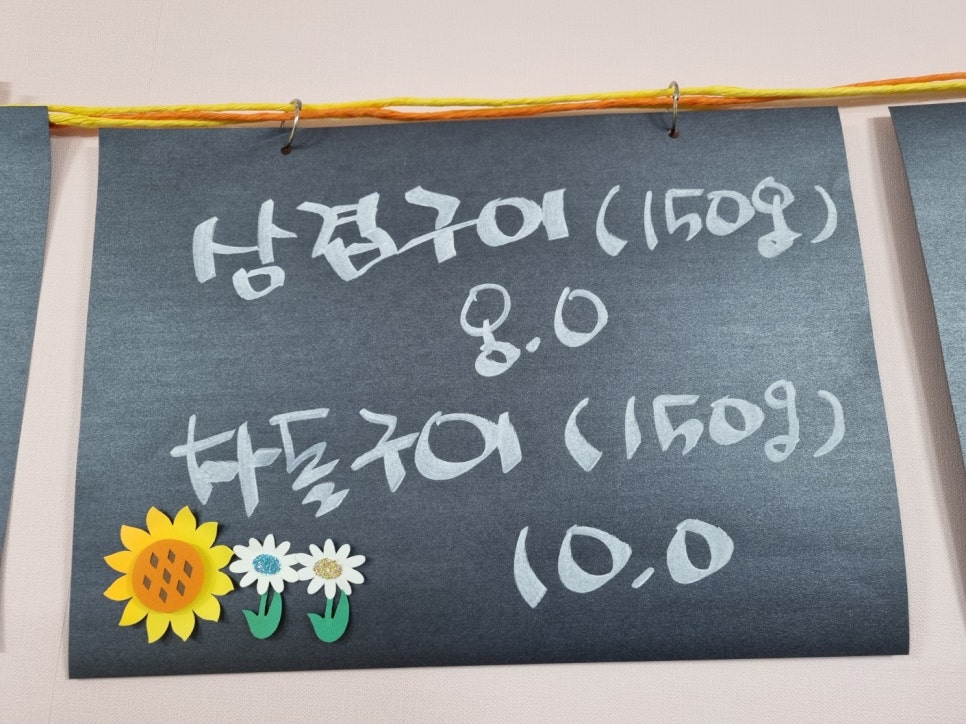 삼겹구이 (150g)
8.0
차돌구이 (150g)
10.0